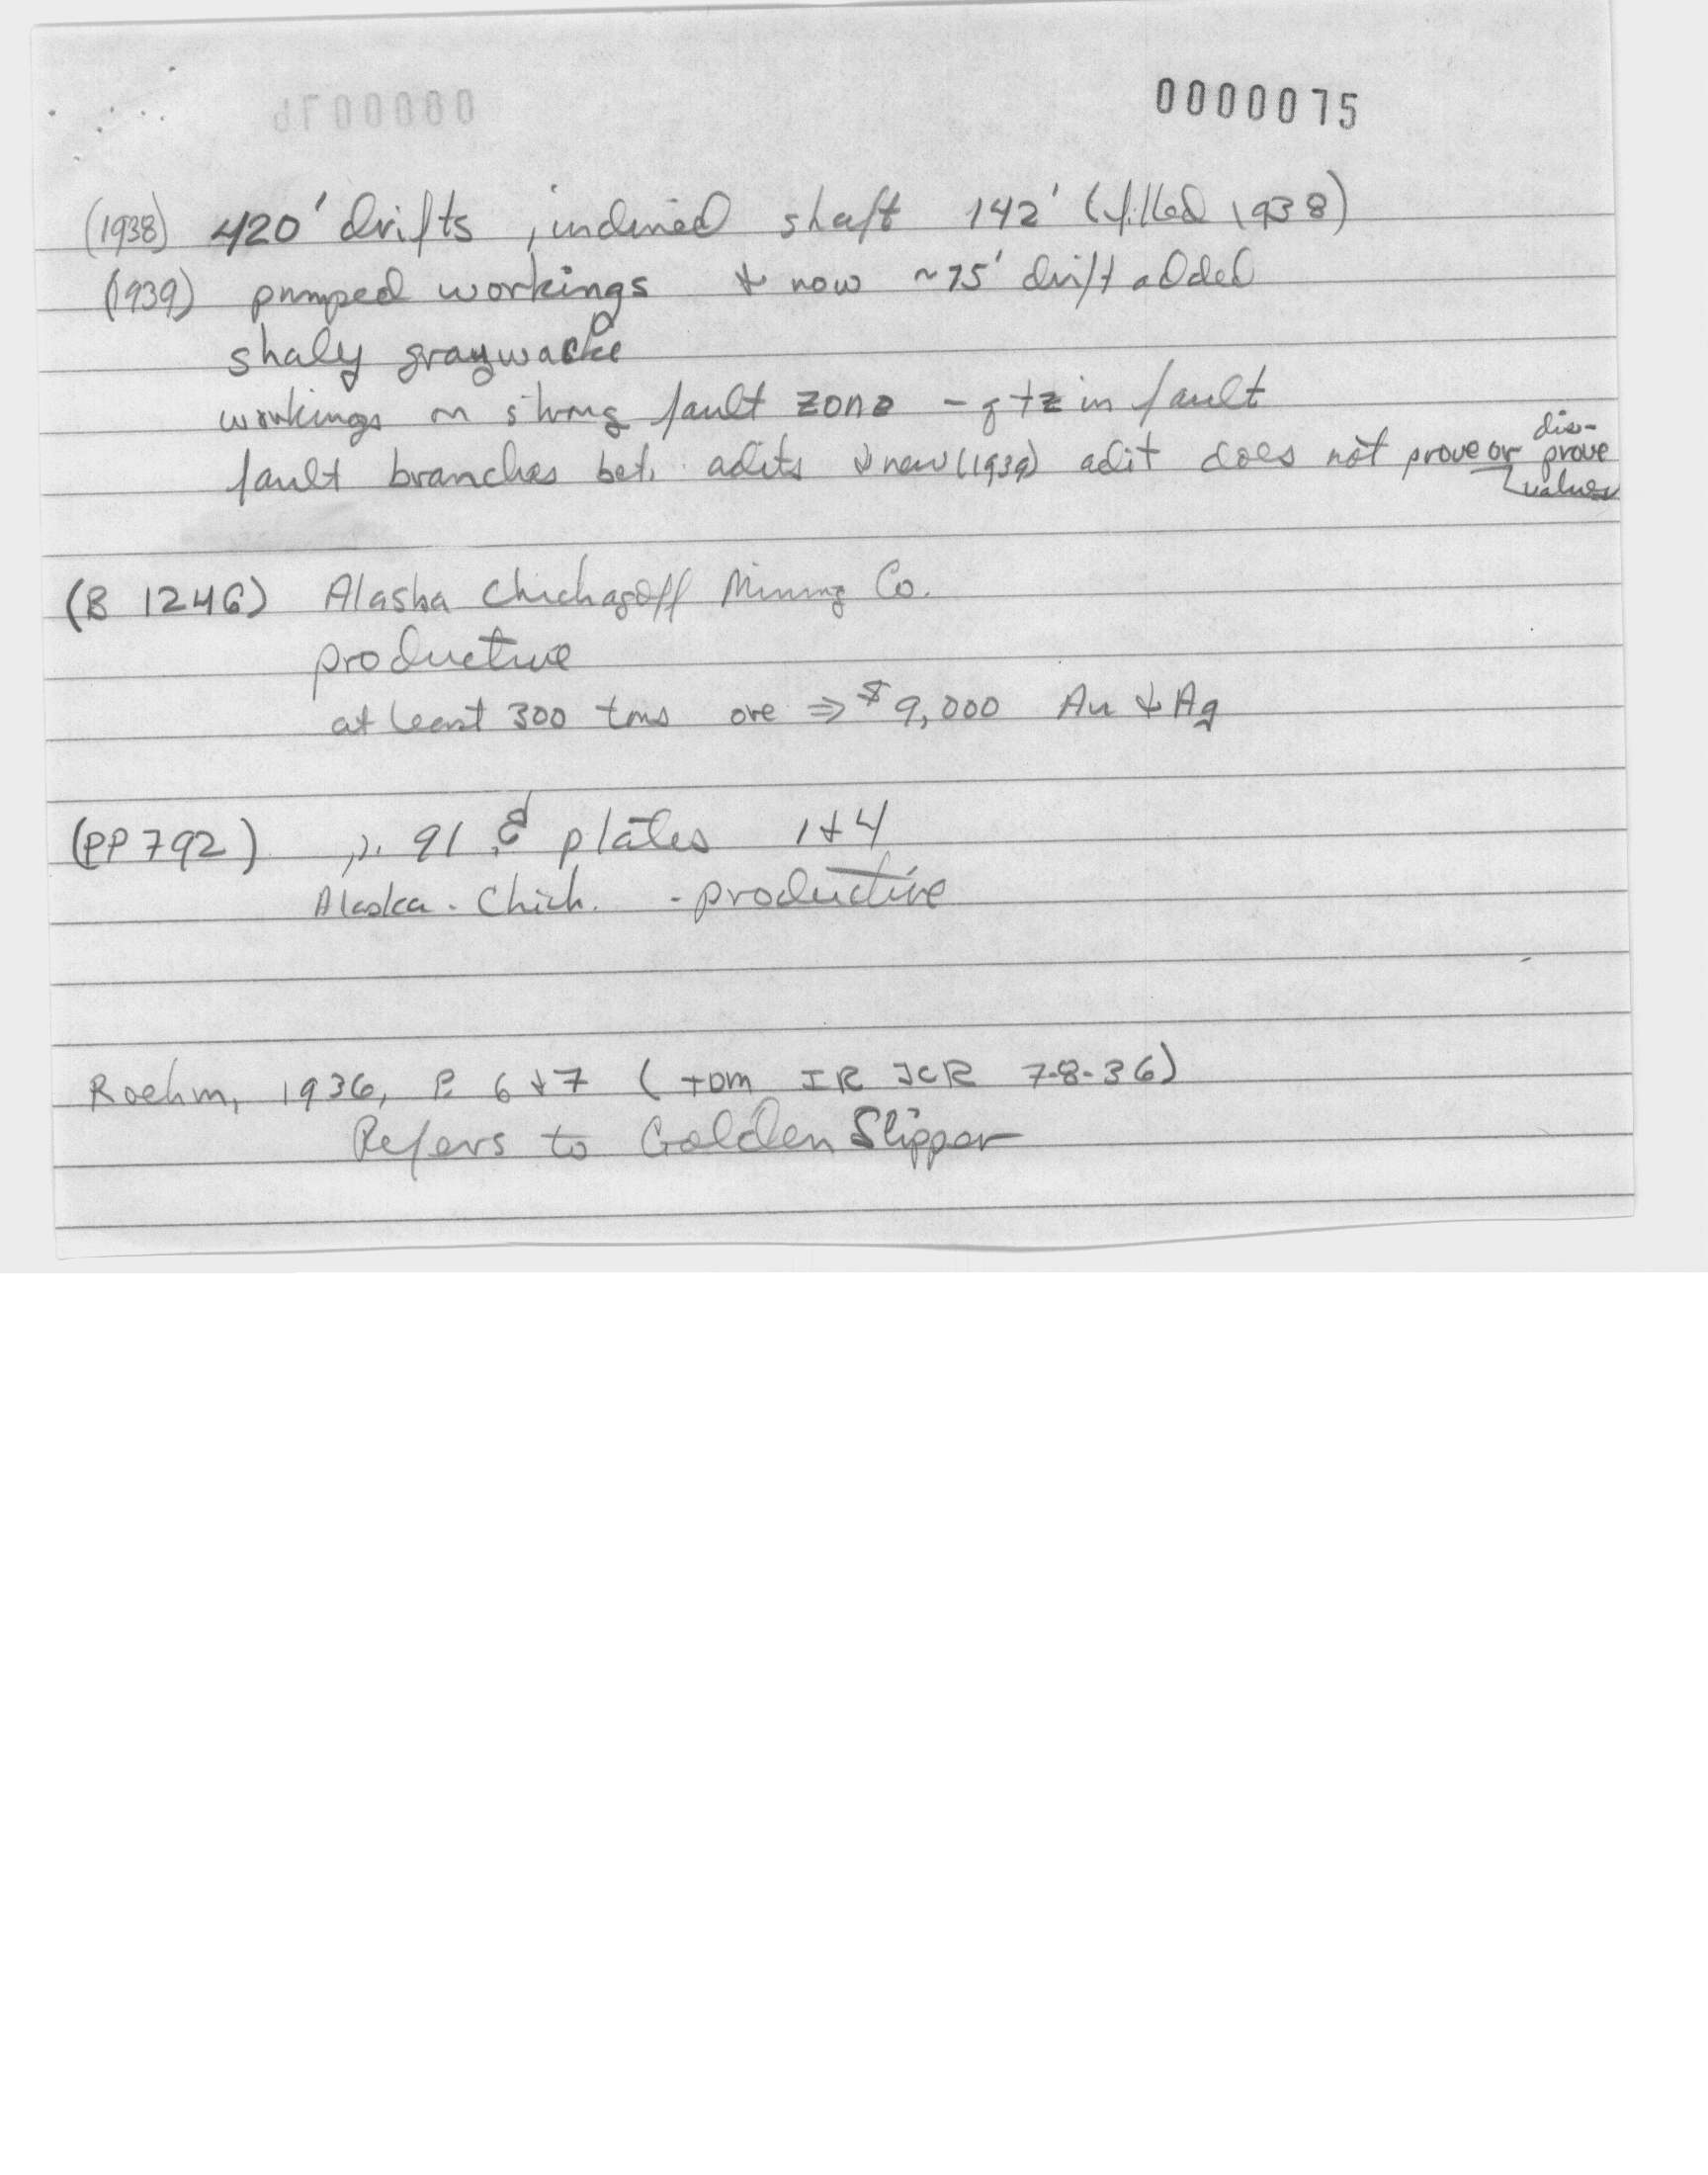 0000075
(1938) 420' drifts, inclined shaft 142' (filled 1938)
(1939) pumped workings & now ~75' drift added
shaly graywacke
workings on strong fault zone - qtz in fault
fault branches bet. adits & new (1939) adit does not prove or dis-prove
values
(B 1246) Alaska Chichagoff Mining Co.
productive
at least 300 tons ore ⇒ $9,000 Au & Ag
(PP 792) p. 91 & plates 1 & 4
Alaska - Chich. - productive
Roehm, 1936, P. 6 & 7 (TDM IR JCR 7-8-36)
Refers to Golden Slipper